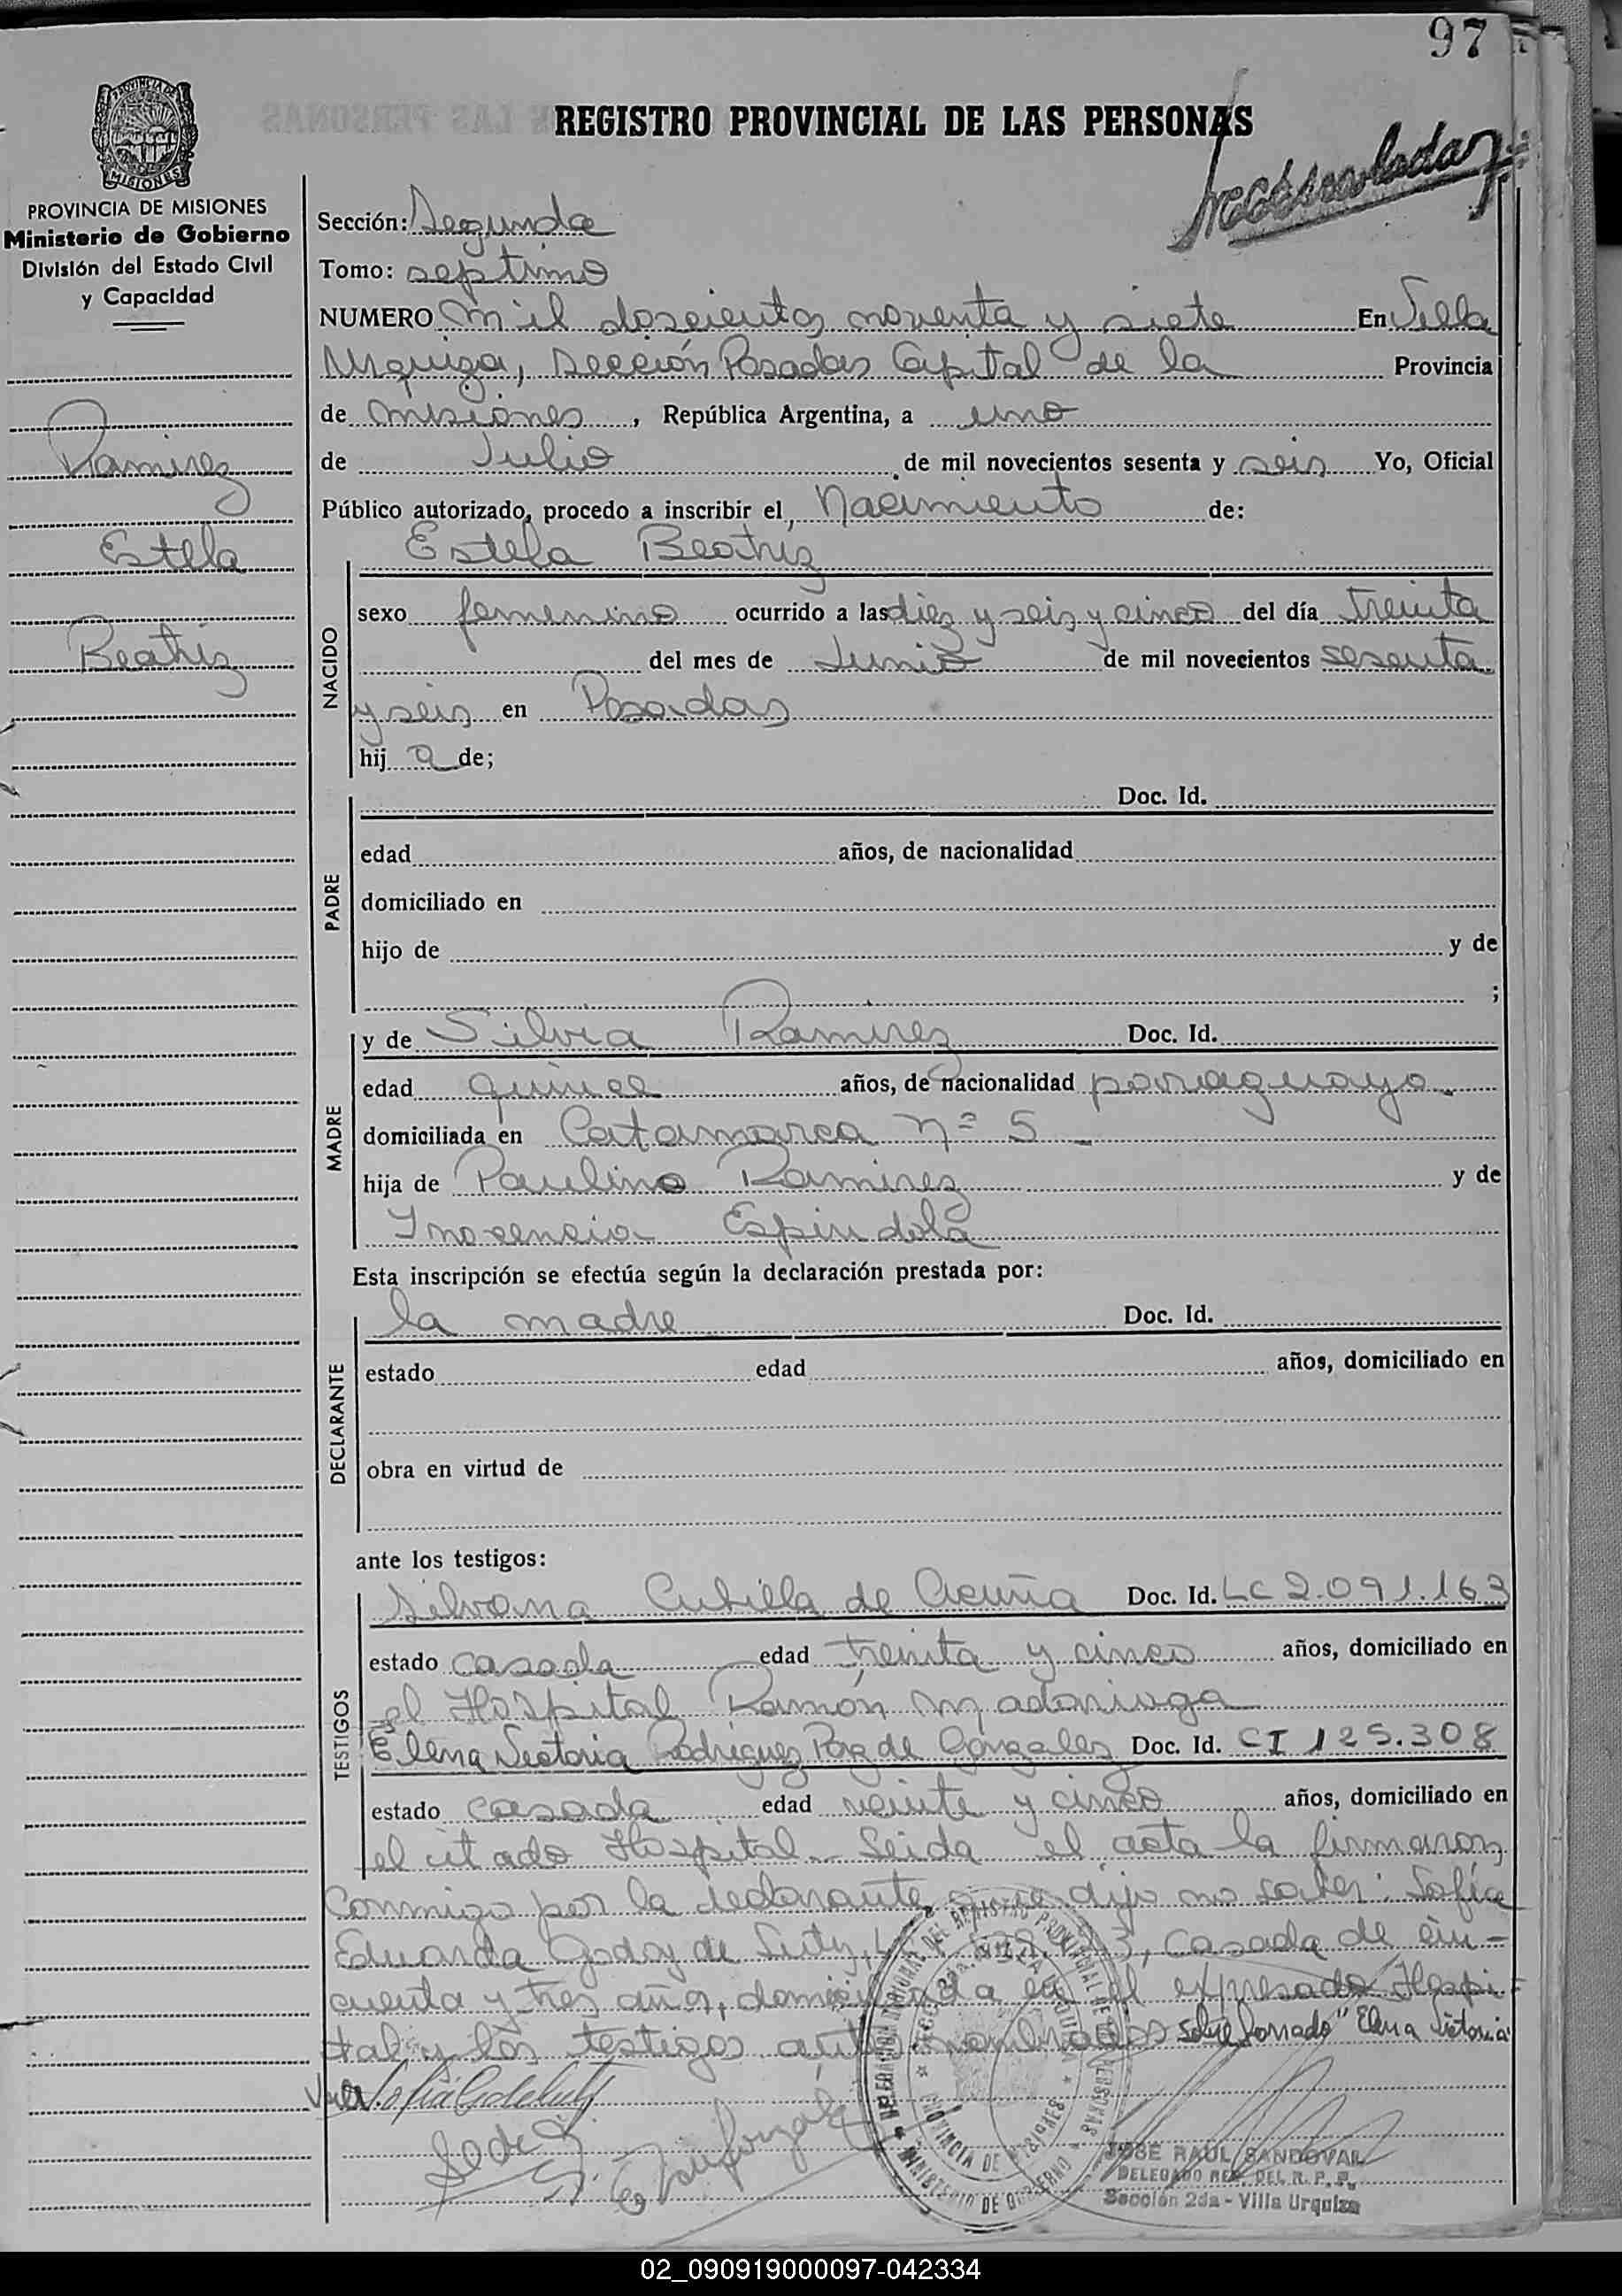 97
REGISTRO PROVINCIAL DE LAS PERSONAS
PROVINCIA DE MISIONES
MISIONES
PROVINCIA DE MISIONES
Ministerio de Gobierno
División del Estado Civil
y Capacidad
Ramirez
Estela
Beatriz
Sección: Segunda
Tomo: septimo
NUMERO mil doscientos noventa y siete En Villa
Urquiza, Sección Posadas Capital de la Provincia
de Misiones, República Argentina, a uno
de Julio de mil novecientos sesenta y seis Yo, Oficial
Público autorizado, procedo a inscribir el Nacimiento de:
Estela Beatriz
NACIDO
sexo femenino ocurrido a las diez y seis y cinco del día treinta
del mes de Junio de mil novecientos sesenta
y seis en Posadas
hij a de;
Doc. Id.
PADRE
edad años, de nacionalidad
domiciliado en
hijo de y de
;
MADRE
y de Silvia Ramirez Doc. Id.
edad quince años, de nacionalidad paraguaya
domiciliada en Catamarca nº 5 -
hija de Paulino Ramirez y de
Inocencia Espindola
Esta inscripción se efectúa según la declaración prestada por:
DECLARANTE
la madre Doc. Id.
estado edad años, domiciliado en
obra en virtud de
ante los testigos:
TESTIGOS
Silvana Cubilla de Acuña Doc. Id. LC 2.091.163
estado casada edad treinta y cinco años, domiciliado en
el Hospital Ramón Madariaga
Elena Victoria Rodriguez Paz de Gonzalez Doc. Id. CI 125.308
estado casada edad veinte y cinco años, domiciliado en
el citado Hospital - Leida el acta la firmaron
conmigo por la declarante que dijo no saber: Sofia
Eduarda Godoy de Luty, casada de cin-
cuenta y tres años, domiciliada en el expresado Hospi-
tal y los testigos antes nombrados sobreborrado "Elena Victoria"
JOSE RAUL SANDOVAL
DELEGADO REG. DEL R. P. P.
Sección 2da - Villa Urquiza
02_090919000097-042334